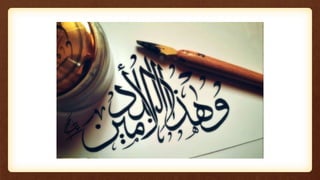 وهذا البلد الأمين